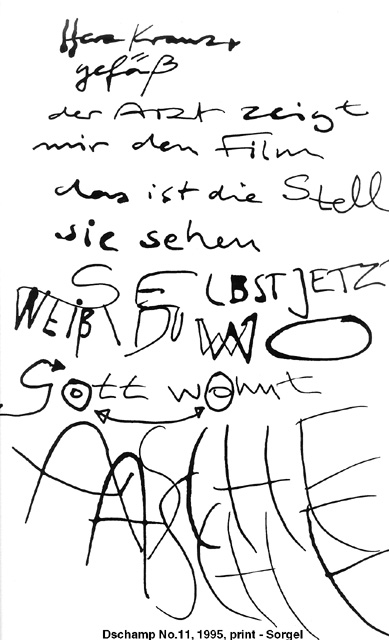 Herz Kranz
gefäß
der Arzt zeigt
mir den Film
das ist die Stell
sie sehen
SELBST JETZ
WEIß DU WO
Gott wohnt
ASCHE
ASCHE
Dschamp No.11, 1995, print - Sorgel